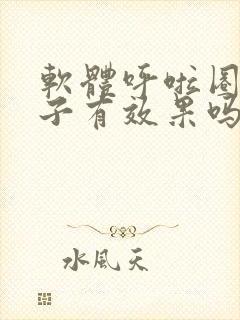 軟體呼啦圈
子有效果吗
水風天